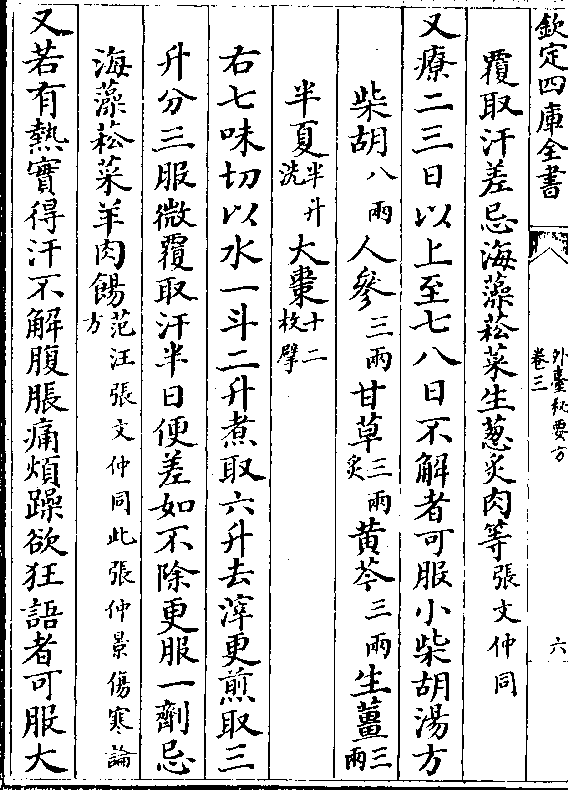 欽定四庫全書
外臺秘要方
卷三
六
覆取汗差忌海藻菘菜生葱炙肉等張文仲同
又療二三日以上至七八日不解者可服小柴胡湯方
柴胡八兩人參三兩甘草三兩炙黄芩三兩生薑三兩
半夏半升洗大棗十二枚擘
右七味切以水一斗二升煮取六升去滓更煎取三
升分三服微覆取汗半日便差如不除更服一劑忌
海藻菘菜羊肉餳范汪張文仲同此張仲景傷寒論方
又若有熱實得汗不解腹脹痛煩躁欲狂語者可服大